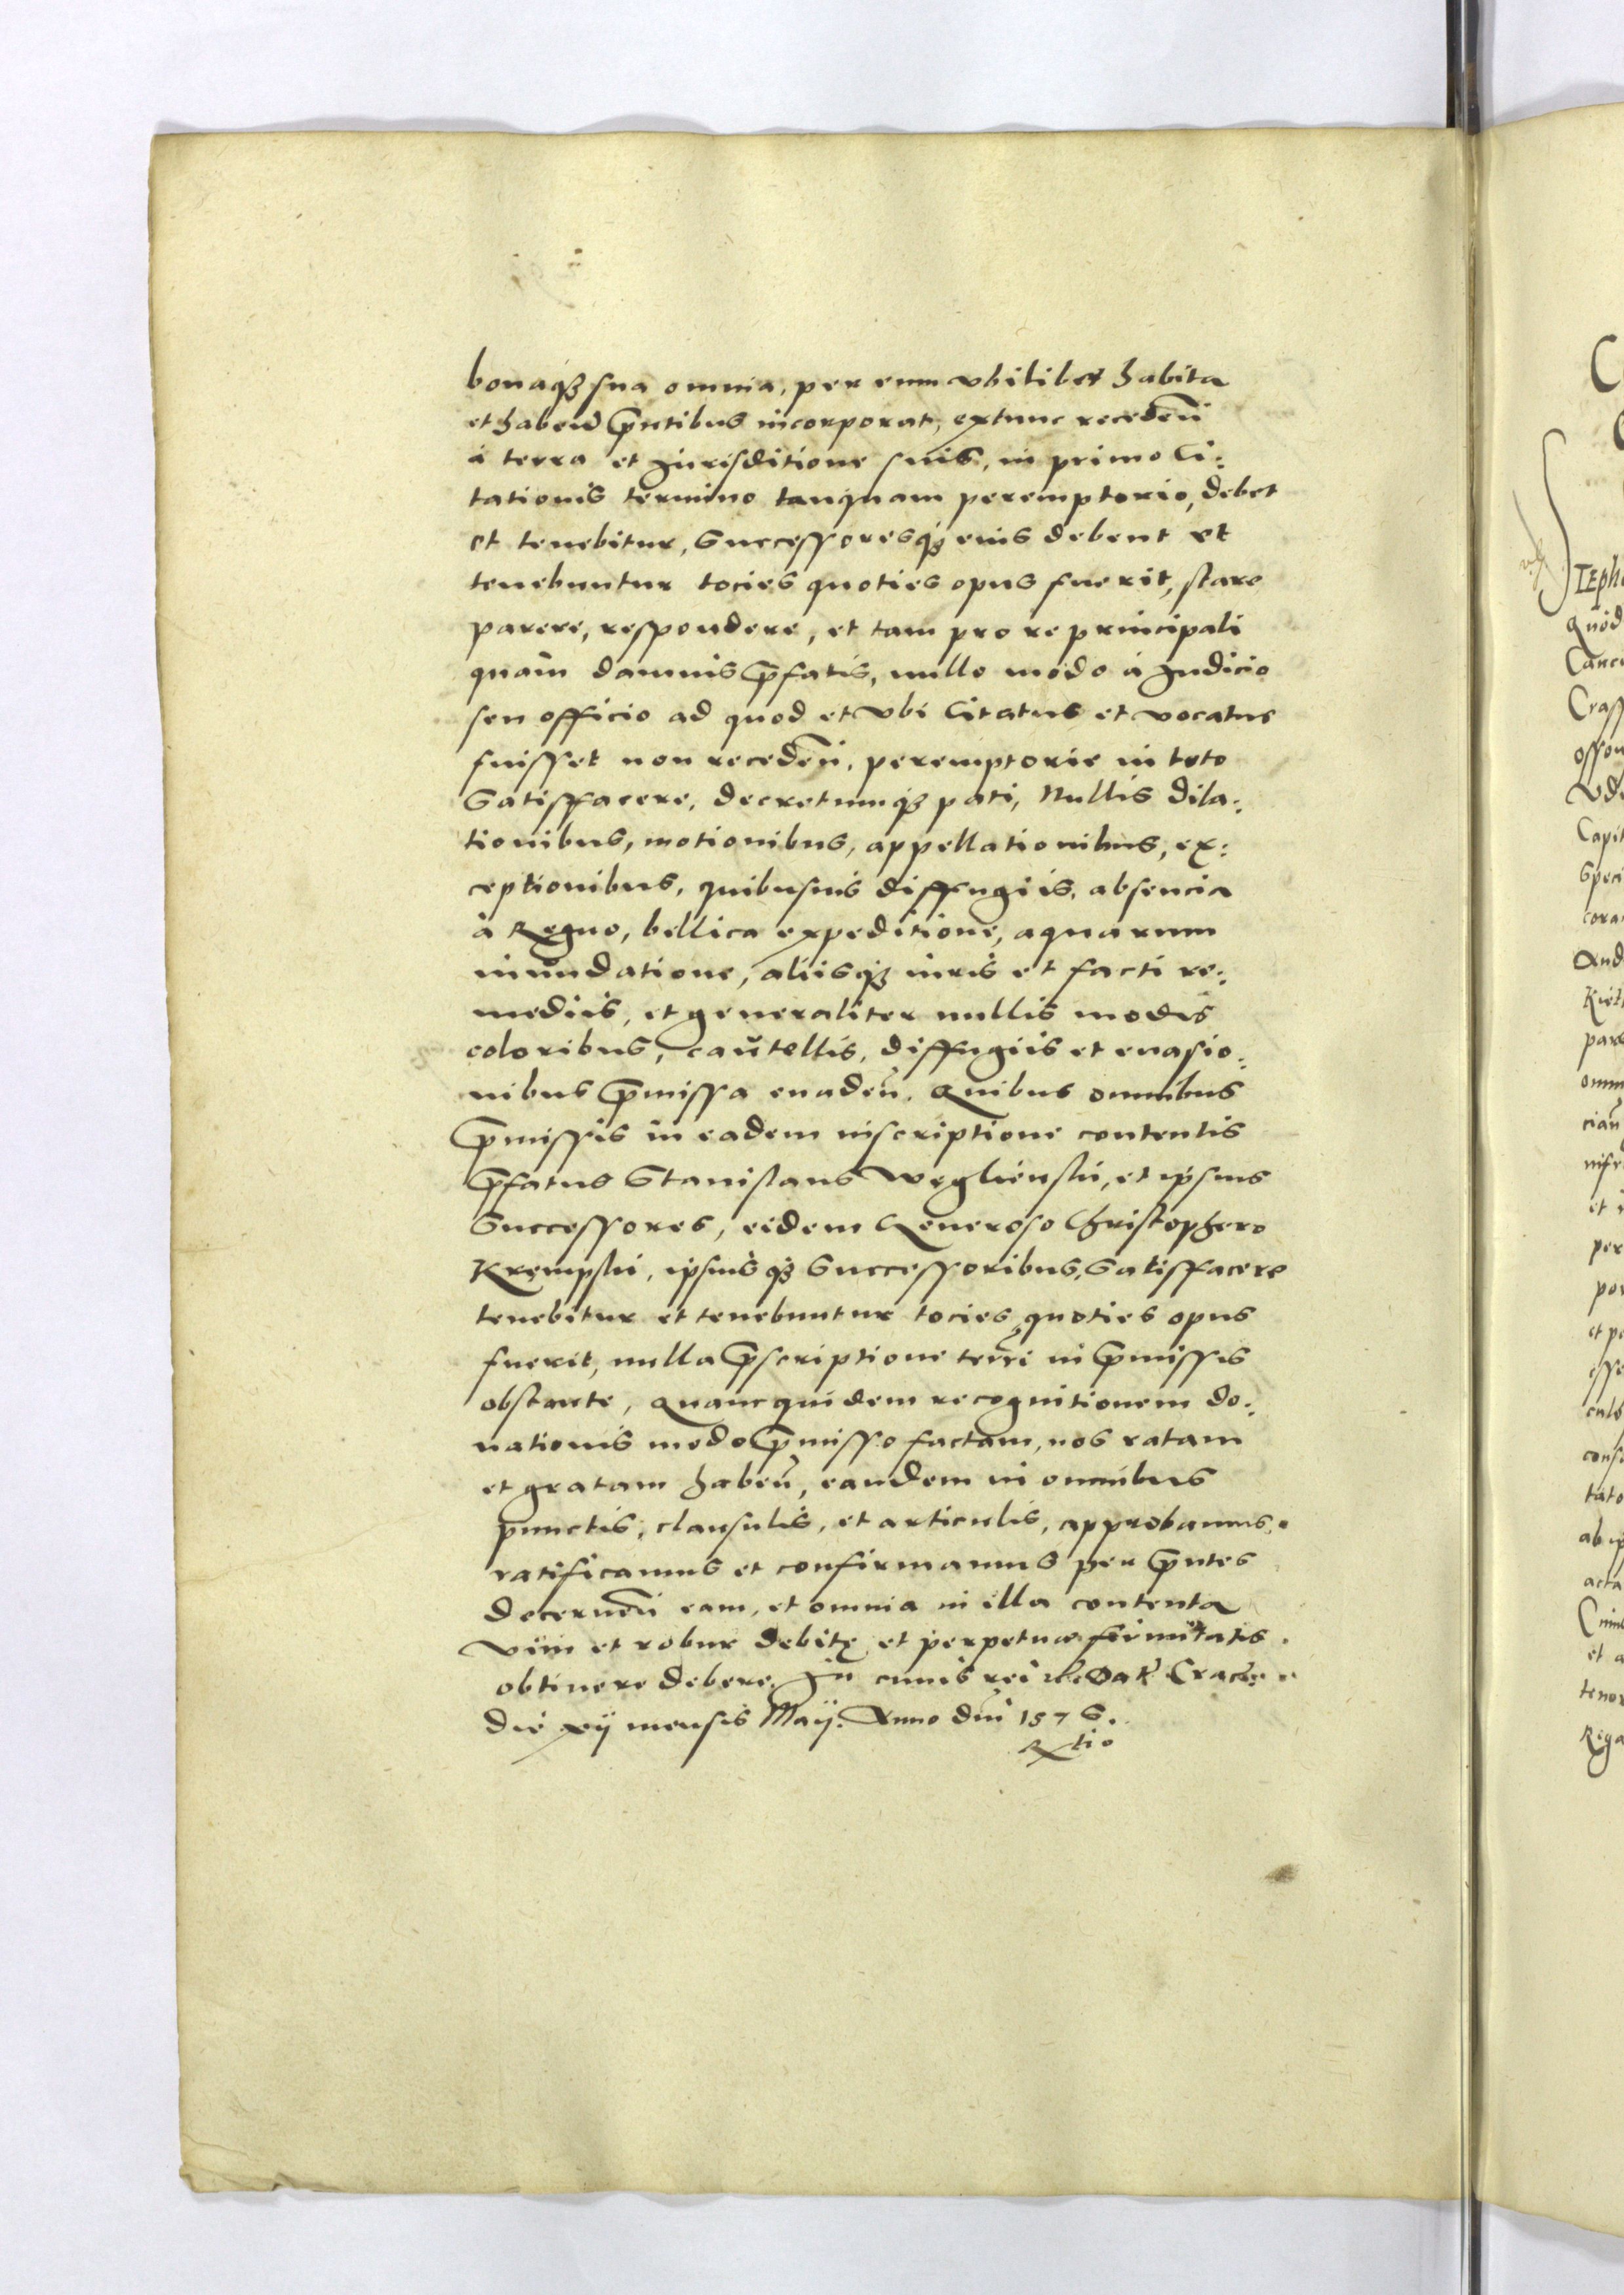 bonaq₃ sua omnia, per eum vbilibet habita
et habend p̄ntibus incorporat, extunc recedeñ
à terra et Jurisditione suis, in primo Ci:
tationis termino tanquam peremptorio, debet
et tenebitur, Successoresq₃ eius debent et
tenebuntur tocies quoties opus fuerit, stare
parere, respondere, et tam pro re principali
quàm damnis p̄fatis, nullo modo à Judicio
seu officio ad quod et vbi Citatus et vocatus
fuisset non recedeñ, peremptorie in toto
Satisfacere, decretumq₃ pati, Nullis dila:
tionibus, motionibus, appellationibus, ex:
ceptionibus, quibusuis diffugiis, absencia
à Regno, bellica expeditione, aquarum
inundatione, aliisq₃ iuris et facti re:
mediis, et generaliter nullis modis
coloribus, cautellis, diffugiis et euasio:
nibus p̄missa euadeñ. Quibus omnibus
p̄missis in eadem inscriptione contentis
p̄fatus Stanislaus Weglienski, et ipsius
Successores, eidem Generoso Christophero
Krempski, ipsiusq₃ Successoribus, Satisfacere
tenebitur et tenebuntur tocies quoties opus
fuerit, nulla p̄scriptione terr̄i in p̄missis
obstante, Quamquidem recognitionem do:
nationis modo p̄misso factam, nos ratam
et gratam habeñ, eandem in omnibus
punctis, clausulis, et articulis, approbamus,
ratificamus et confirmamus per p̄ntes
decerneñ eam, et omnia in illa contenta
vim et robur debitę et perpetuæ firmitatis
obtinere debere. In cuius rei Dat Crac:
die xij mensis Maij. Anno dñi 1576.
Rxtio